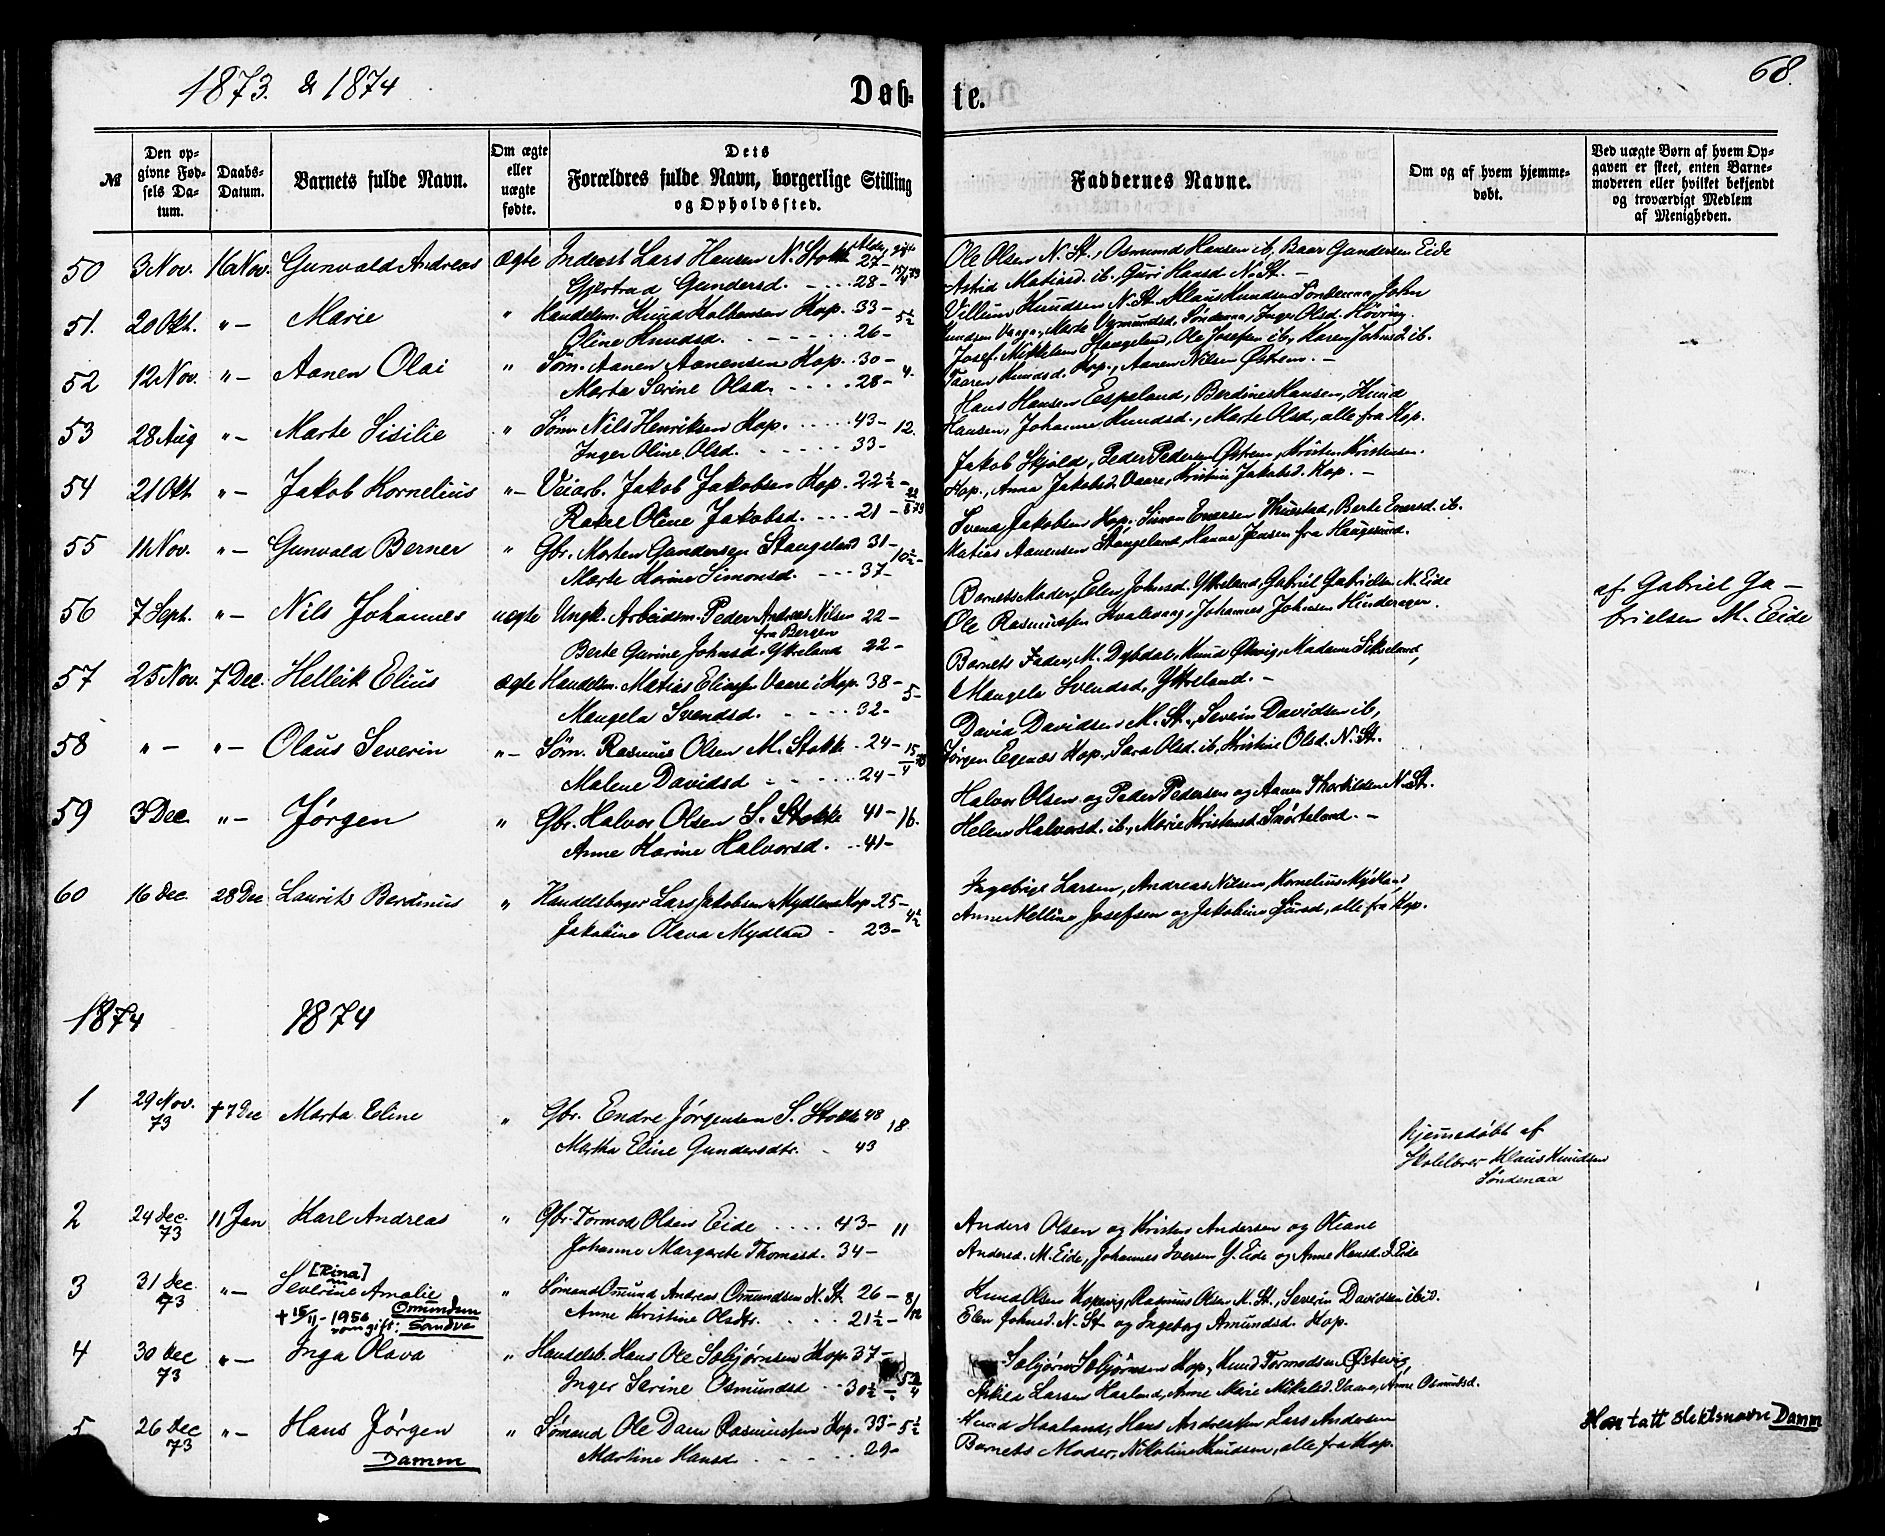 1873. & 1874
Døb-
te.
68.
№
Den opgivne Fødsels Datum.
Daabs-Datum.
Barnets fulde Navn.
Om ægte eller uægte fødte.
Dets Forældres fulde Navn, borgerlige Stilling og Opholdssted.
Faddernes Navne.
Om og af hvem hjemmedøbt.
Ved uægte Børn af hvem Opgaven er skeet, enten Barnemoderen eller hvilket bekjendt og troværdigt Medlem af Menigheden.
50 3 Nov. 16 Nov. Gunvald Andreas ægte Inderst Lars Hansen N. Stokk 27 -
Gjertrud Gundersd. 28 -
Ole Olsen N. St., Osmund Hansen ib, Baar Gundersen Eide
Astrid Matiasd. ib. Guri Hansd. N. St. -
51. 20 Okt. " - Marie " Handelsm. Knud Kolbensen Kop. 33 - 5½
Oline Knudsd. 26 -
Villum Knudsen N. St. Klaus Knudsen Søndenaa, John
Knudsen Vaaga, Marte Vermundsd. Søndenaa, Inger Olsd. Høvring.
52 12 Nov. " - Aanen Olai " Søm. Aanen Aanensen Kop. 30 - 4.
Marta Serine Olsd. 28 -
Josef Mikkelsen Haugeland, Ole Josefsen ib, Karen Johnsd. ib.
Taaren Knudsd. Kop., Aanen Nilsen Østrem. -
53 28 Aug " - Marte Sisilie " Søm. Nils Henriksen Kop. 43 - 12.
Inger Oline Olsd. 33 -
Hans Hansen Espeland, Berdines Hansen, Knud
Hansen, Johanne Knudsd., Marte Olsd, alle fra Kop.
54 21 Okt " - Jakob Kornelius " - Veiarb. Jakob Jakobsen Kop. 22½ -
Rakel Oline Jakobsd. 21 -
Jakob Skjold, Peder Pedersen Østrem, Kristen Kristensen
Kop., Anna Jakobsd. Vaare, Kristin Jakobsd. Kop. -
55 11 Nov. " - Gunvald Berner " Gbr. Morten Gundersen Stangeland 31 - 10½ -
Marte Karine Simonsd. 37 -
Svend Jakobsen Kop. Simon Enersen Thuestad, Berte Enersd. ib.
Matias Aanensen Stangeland, Hanna Jensen fra Haugesund.
56 7 Sept. " - Nils Johannes uægte Ungk. Arbeidsm. Peder Andreas Nilsen 22 -
fra Bergen
Berte Gurine Johnsd. Ytreland 22 -
Barnets Moder, Elen Johnsd. Ytreland, Gabriel Gabrielsen M. Eide
Ole Rasmussen Kvalevaag, Johannes Johnsen Hinderager.
af Gabriel Ga-
brielsen M. Eide
57 25 Nov. 7 Dec. Hellik Elius ægte Handelsm. Matias Eliasen Vaare i Kop. 38 - 5 -
Mangela Svendsd. 32 -
Barnets Fader, M. Dybdal, Knud Østvig, Madame Sikveland,
Mangela Svendsd, Ytreland. -
58 " - " - Olaus Severin " - Søm. Rasmus Olsen M. Stokk. 24 -
Malene Davidsd 24 -
David Davidsen M. St., Severin Davidsen ib,
Jørgen Egenæs Kop., Sara Olsd. ib, Kristine Olsd. N. St.
59 3 Dec. " - Jørgen " Gbr. Halvor Olsen S. Stokke 41 - 16.
Anne Karine Halvorsd. 41 -
Halvor Olsen og Peder Pedersen og Aanen Thorkildsen N. St.
Helene Halvorsd. ib, Marie Kristensd. Snørteland. -
60 16 Dec. 28 Dec Laurits Berdinus " Handelsborger Lars Jakobsen Mydland Kop 25 - 4½
Jakobine Olava Mydland 23 -
Ingebrigt Larsen, Andreas Nilsen, Kornelius Mydland
Anne Melline Josefsen og Jakobine Larsd, alle fra Kop.
1874 1874
1 29 Nov. 73 † 7 Dec Marta Eline " Gbr. Endre Jørgensen S. Stokke 48 18
Martha Eline Gundersdtr. 43
hjemmedøbt af
Skolelærer Klaus Knudsen
Søndenaa
2 24 Dec. 73 11 Jan Karl Andreas " Gbr. Tormod Olsen Eide 43 - 11
Johanne Margarete Thomasd. 34 -
Anders Olsen og Kristen Andersen og Oliane
Andersd. M. Eide, Johannes Iversen Y. Eide og Anne Hansd. I. Eide
3 31 Dec. 73 " - [Rina]
Severine Amalie
† 15/11 - 1950 Omundsen
som gift: Sandve
" Sømand Omund Andreas Omundsen N. St. 26 - 8/12
Anne Kristine Olsdtr. 21½ -
Knud Olsen Kopervig, Rasmus Olsen M. St., Severin Davidsen ibid.
Elen Johnsd. N. St og Ingeborg Amundsd. Kop.
4 30 Dec 73 " - Inga Olava " Handelsb. Hans Ole Sebjørnsen Kop. 37 -
Inger Serine Osmundsd 30½ -
Sebjørn Sebjørnsen Kop., Knud Tormodsen Østevig,
Larsen Høeland, Anne Marie Mikkelsd. Vaaga, Anne Osmundsd.
5 26 Dec 73 " - Hans Jørgen
Damm
" Sømand Ole Dam Rasmussen Kop. 33 - 5½
Martine Hansd 29 -
Knud Haaland, Hans Andreassen Lars Andersen
Barnets Moder, Nikoline Knudsen, alle fra Kop.
Han tatt slektsnavn Damm